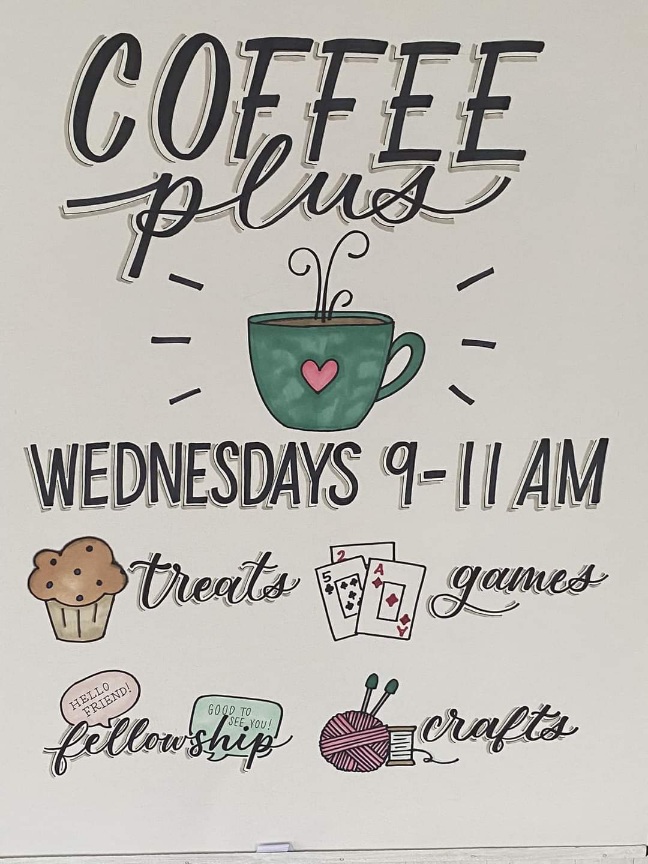 COFFEE
plus
WEDNESDAYS 9-11 AM
treats
2
5
A
A
games
HELLO
FRIEND!
GOOD TO
SEE YOU!
fellowship
crafts